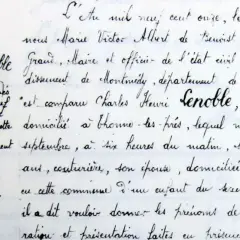 L'An mil neuf cent onze, l
nous Marie Victor Albert de Benoist
Grand, Maire et officier de l'état civil
dissement de Montmédy, département d
est comparu Charles Henri Lenoble,
domicilié à Thonne les prés, lequel n
septembre, à six heures du matin, s
ans, couturière, son épouse, domiciliée
en cette commune d'un enfant du sexe
il a dit vouloir donner les prénoms de
ration et présentation faites en présence